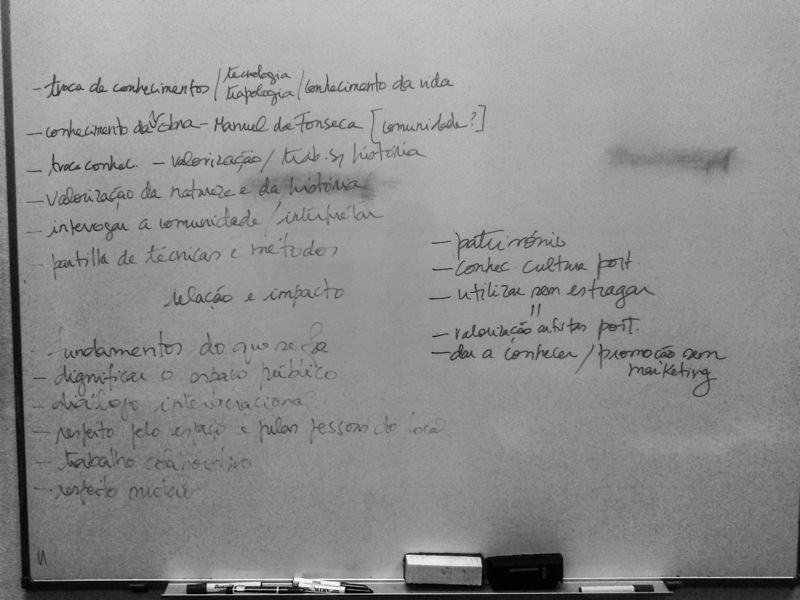 - troca de conhecimentos / tecnologia / conhecimento da vida
trapologia
- conhecimento da obra - Manuel da Fonseca [comunidade?]
- troca conhec. - valorização / trab. s/ história
- valorização da natureza e da história
- interrogar a comunidade / interpretar
- partilha de técnicas e métodos
relação e impacto
- fundamentos do que se faz
- dignificar o espaço público
- diálogo intergeracional
- respeito pelo espaço e pelas pessoas do local
- trabalho
- respeito mútuo
- património
- conhec. cultura port.
- utilizar sem estragar
=
- valorização artistas port.
- dar a conhecer / promoção sem
marketing